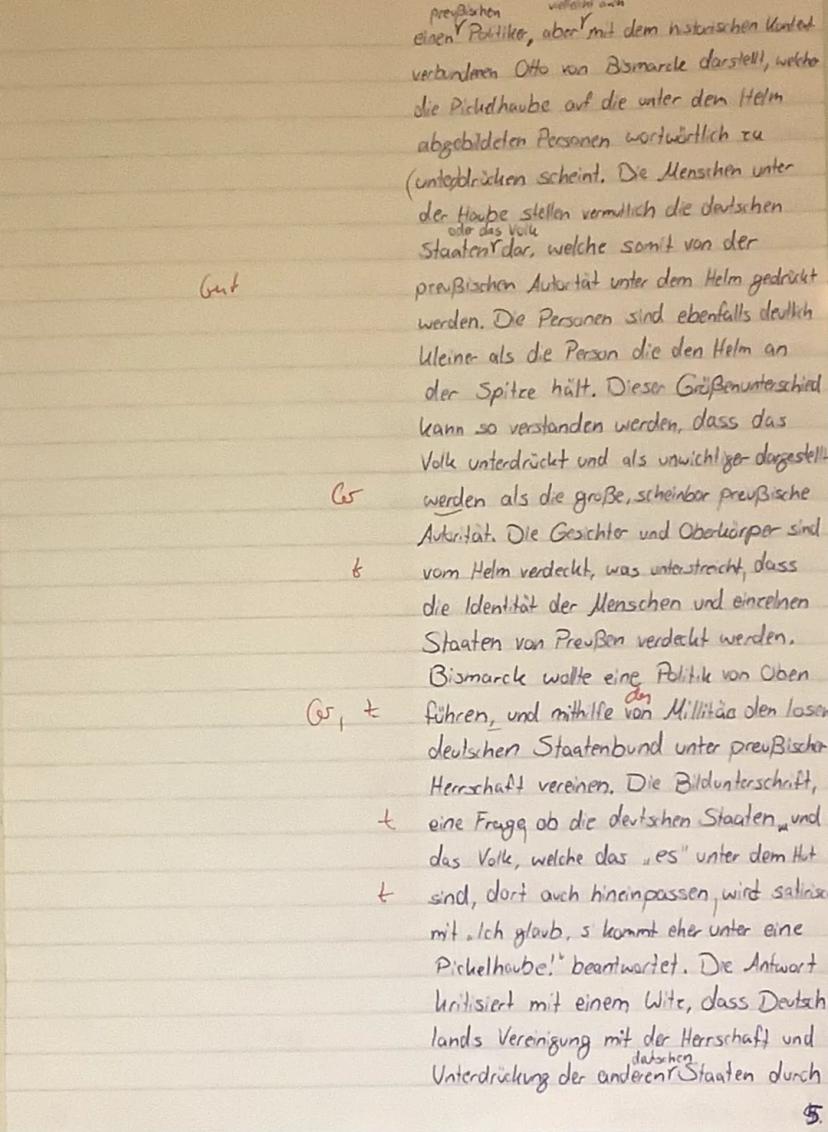 preußischen vielleicht auch
einen Politiker, aber mit dem historischen Kontext
verbundenen Otto von Bismarck darstellt, welcher
die Pickelhaube auf die unter dem Helm
abgebildeten Personen wortwörtlich zu
(unterdrücken scheint. Die Menschen unter
der Haube stellen vermutlich die deutschen
oder das Volk
Staaten dar, welche somit von der
Gut preußischen Autorität unter dem Helm gedrückt
werden. Die Personen sind ebenfalls deutlich
kleiner als die Person die den Helm an
der Spitze hält. Dieser Größenunterschied
kann so verstanden werden, dass das
Volk unterdrückt und als unwichtiger dargestellt
Gr werden als die große, scheinbar preußische
Autorität. Die Gesichter und Oberkörper sind
t vom Helm verdeckt, was unterstreicht, dass
die Identität der Menschen und einzelnen
Staaten von Preußen verdeckt werden.
Bismarck wollte eine Politik von Oben
des
Gr, t führen, und mithilfe von Millitär den losen
deutschen Staatenbund unter preußischer
Herrschaft vereinen. Die Bildunterschrift,
t eine Frage ob die deutschen Staaten, und
das Volk, welche das „es" unter dem Hut
t sind, dort auch hineinpassen, wird satirisch
mit „Ich glaub, s kommt eher unter eine
Pickelhaube!" beantwortet. Die Antwort
kritisiert mit einem Witz, dass Deutsch
lands Vereinigung mit der Herrschaft und
deutschen
Unterdrückung der anderen Staaten durch
5.